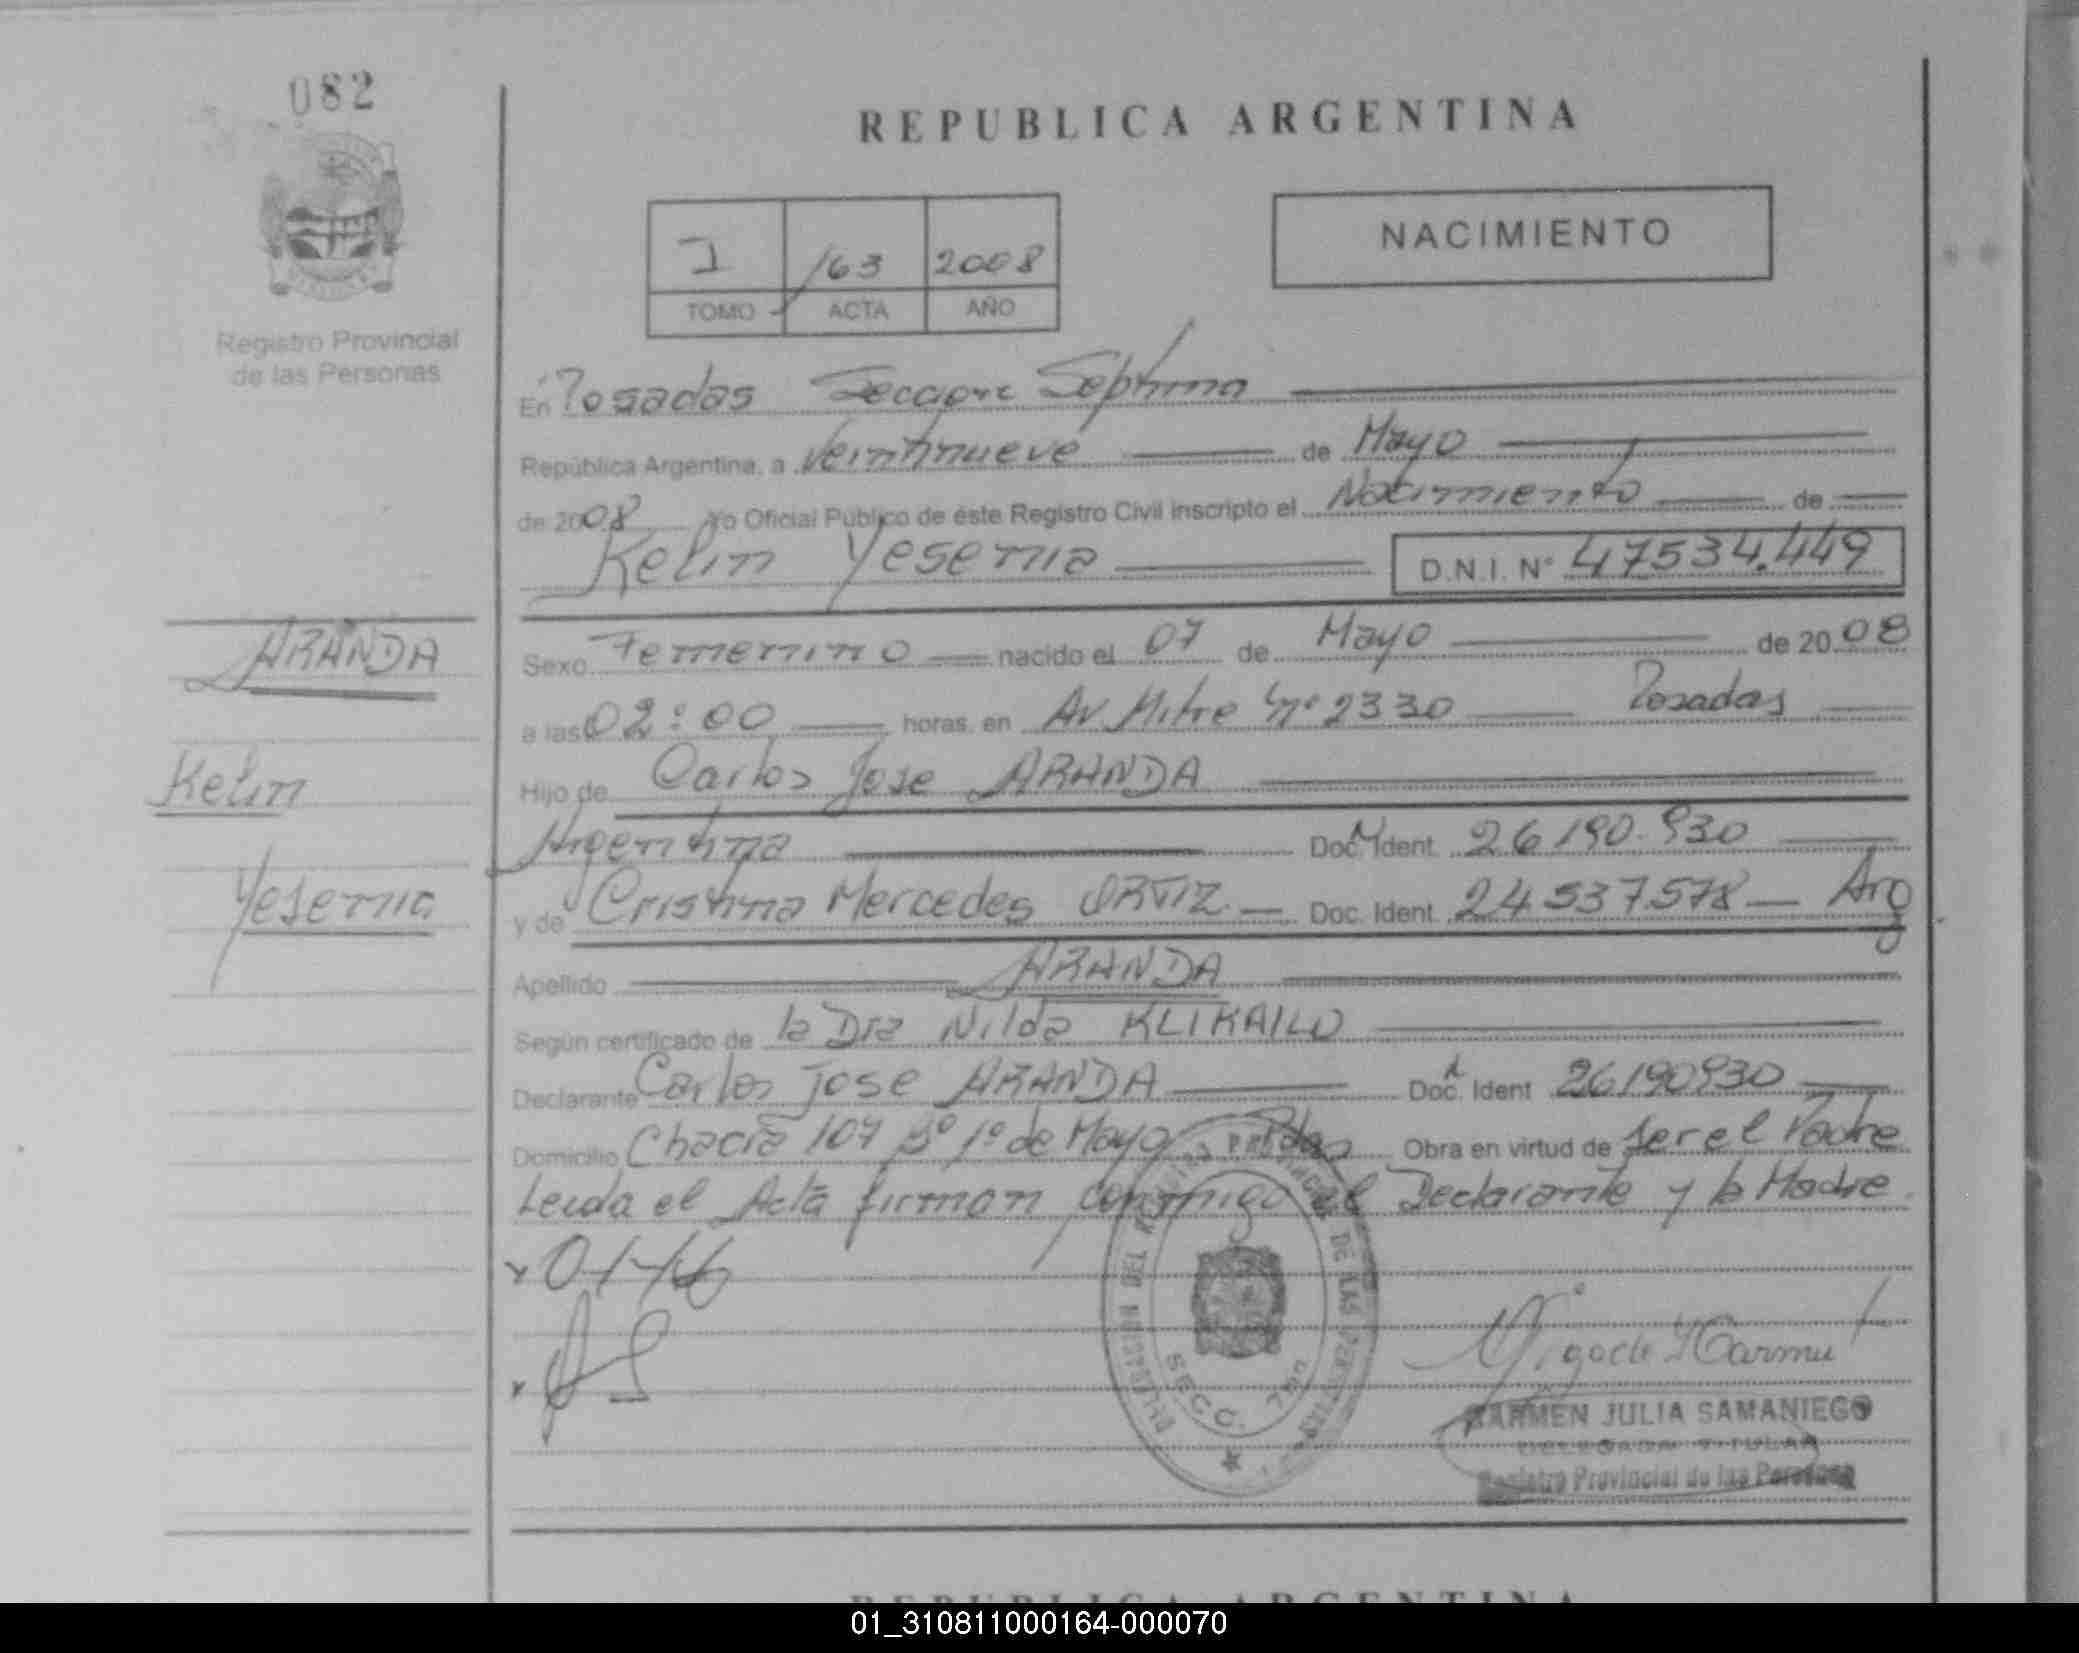 082
REPUBLICA ARGENTINA
I /63 2008
TOMO ACTA AÑO
NACIMIENTO
Registro Provincial
de las Personas
En Posadas Seccion Septima
República Argentina, a Veintinueve de Mayo
de 2008 Yo Oficial Público de éste Registro Civil inscripto el Nacimiento de
Kelin Yesenia D.N.I. N° 47534.449
ARANDA
Kelin
Yesenia
Sexo Femenino nacido el 07 de Mayo de 2008
a las 02:00 horas, en Av Mitre Nº 2330 Posadas
Hijo de Carlos Jose ARANDA
Argentina Doc. Ident. 26190.930
y de Cristina Mercedes ORTIZ Doc. Ident. 24537578 Arg
Apellido ARANDA
Según certificado de la Dra Nilda KLIKAILO
Declarante Carlos Jose ARANDA Doc. Ident 26190930
Domicilio Chacra 107 Bº 1º de Mayo Pdas Obra en virtud de ser el Padre
Leida el Acta firman conmigo el Declarante y la Madre
PROVINCIAL DE LAS
SECC. 7ma
CARMEN JULIA SAMANIEGO
DELEGADA TITULAR
Registro Provincial de las Personas
REPUBLICA ARGENTINA
01_310811000164-000070